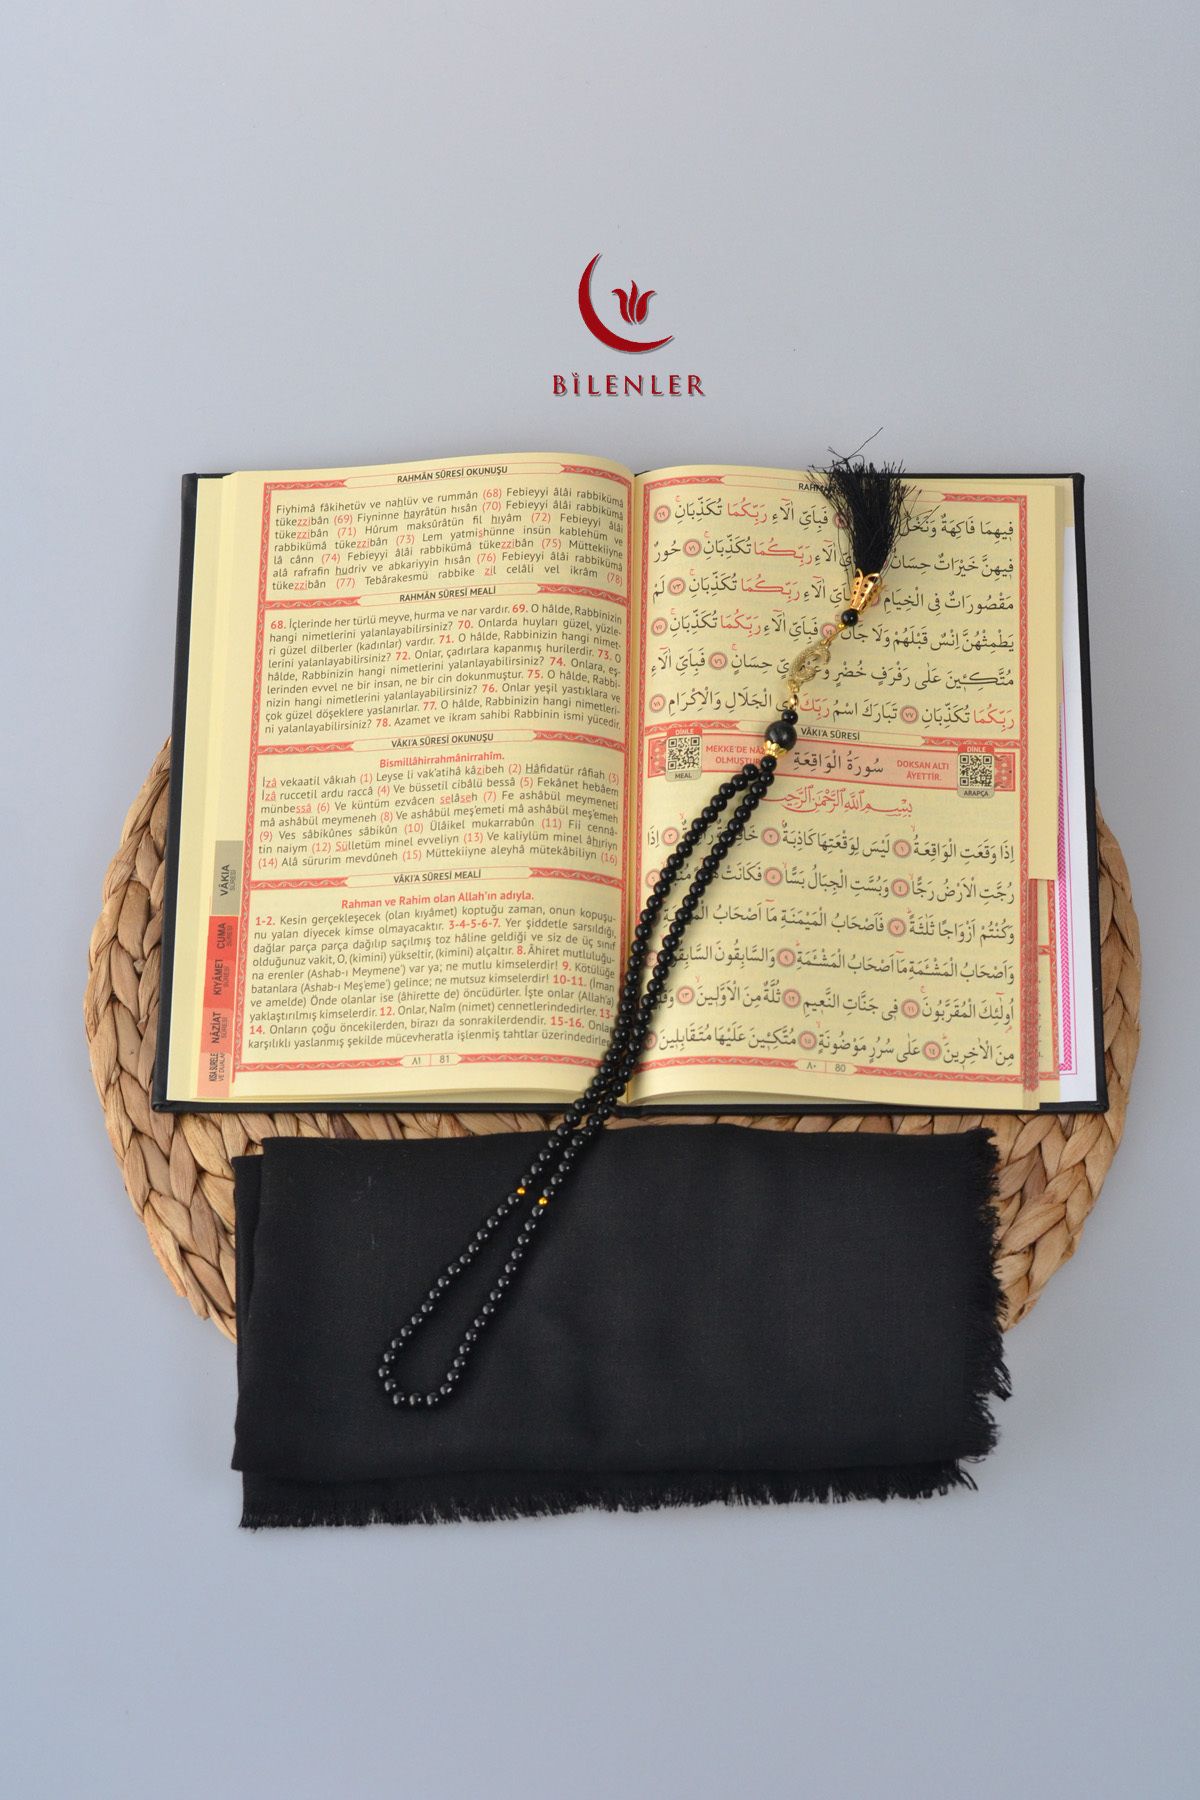 BİLENLER
RAHMÂN SÛRESİ OKUNUŞU
Fiyhimâ fâkihetüv ve nahlüv ve rummân (68) Febieyyi âlâi rabbikümâ
tükezzibân (69) Fiyninne hayrâtün hısân (70) Febieyyi âlâi rabbikümâ
tükezzibân (71) Hûrum maksûrâtün fil hıyâm (72) Febieyyi âlâi
rabbikümâ tükezzibân (73) Lem yatmişhünne insün kablehüm ve
lâ cânn (74) Febieyyi âlâi rabbikümâ tükezzibân (75) Müttekiîyne
alâ rafrafin hudriv ve abkariyyin hısân (76) Febieyyi âlâi rabbikümâ
tükezzibân (77) Tebârakesmü rabbike zil celâli vel ikrâm (78)
RAHMÂN SÛRESİ MEALİ
68. İçlerinde her türlü meyve, hurma ve nar vardır. 69. O hâlde, Rabbinizin
hangi nimetlerini yalanlayabilirsiniz? 70. Onlarda huyları güzel, yüzle-
ri güzel dilberler (kadınlar) vardır. 71. O hâlde, Rabbinizin hangi nimet-
lerini yalanlayabilirsiniz? 72. Onlar, çadırlara kapanmış hurilerdir. 73. O
hâlde, Rabbinizin hangi nimetlerini yalanlayabilirsiniz? 74. Onlara, eş-
lerinden evvel ne bir insan, ne bir cin dokunmuştur. 75. O hâlde, Rabbi-
nizin hangi nimetlerini yalanlayabilirsiniz? 76. Onlar yeşil yastıklara ve
çok güzel döşeklere yaslanırlar. 77. O hâlde, Rabbinizin hangi nimetleri-
ni yalanlayabilirsiniz? 78. Azamet ve ikram sahibi Rabbinin ismi yücedir.
VÂKI'A SÛRESİ OKUNUŞU
Bismillâhirrahmânirrahîm.
İzâ vekaatil vâkıah (1) Leyse li vak'atihâ kâzibeh (2) Hâfidatür râfiah (3)
İzâ ruccetil ardu raccâ (4) Ve büssetil cibâlü bessâ (5) Fekânet hebâem
münbessâ (6) Ve küntüm ezvâcen selâseh (7) Fe ashâbül meymeneti
mâ ashâbül meymeneh (8) Ve ashâbül meş'emeti mâ ashâbül meş'emeh
(9) Ves sâbikûnes sâbikûn (10) Ülâikel mukarrabûn (11) Fii cennâ-
tin naiym (12) Sülletüm minel evveliyn (13) Ve kaliylüm minel âhıriyn
(14) Alâ sürurim mevdûneh (15) Müttekiîyne aleyhâ mütekâbiliyn (16)
VÂKI'A SÛRESİ MEALİ
Rahman ve Rahim olan Allah'ın adıyla.
1-2. Kesin gerçekleşecek (olan kıyâmet) koptuğu zaman, onun kopuşu-
nu yalan diyecek kimse olmayacaktır. 3-4-5-6-7. Yer şiddetle sarsıldığı,
dağlar parça parça dağılıp saçılmış toz hâline geldiği ve siz de üç sınıf
olduğunuz vakit, O, (kimini) yükseltir, (kimini) alçaltır. 8. Âhiret mutluluğu-
na erenler (Ashab-ı Meymene') var ya; ne mutlu kimselerdir! 9. Kötülüğe
batanlara (Ashab-ı Meş'eme') gelince; ne mutsuz kimselerdir! 10-11. (İman
ve amelde) Önde olanlar ise (âhirette de) öncüdürler. İşte onlar (Allah'a)
yaklaştırılmış kimselerdir. 12. Onlar, Naîm (nimet) cennetlerindedirler. 13-
14. Onların çoğu öncekilerden, birazı da sonrakilerdendir. 15-16. Onlar
karşılıklı yaslanmış şekilde mücevheratla işlenmiş tahtlar üzerindedirler
٨١ 81
VÂKIA SÛRESİ
CUMA SÛRESİ
KIYÂMET SÛRESİ
NÂZİÂT SÛRESİ
KISA SURELER VE DUALAR
فِيهِمَا فَاكِهَةٌ وَنَخْلٌ فَبِاَيِّ اٰلَٓاءِ رَبِّكُمَا تُكَذِّبَانِۚ ٦٩
فِيهِنَّ خَيْرَاتٌ حِسَانٌ اٰلَٓاءِ رَبِّكُمَا تُكَذِّبَانِۚ ٧١ حُورٌ
مَقْصُورَاتٌ فِي الْخِيَامِ اٰلَٓاءِ رَبِّكُمَا تُكَذِّبَانِۚ ٧٣ لَمْ
يَطْمِثْهُنَّ اِنْسٌ قَبْلَهُمْ وَلَا جَٓانٌّ فَبِاَيِّ اٰلَٓاءِ رَبِّكُمَا تُكَذِّبَانِۚ ٧٥
مُتَّكِـِٔينَ عَلٰى رَفْرَفٍ خُضْرٍ حِسَانٍۚ ٧٦ فَبِاَيِّ اٰلَٓاءِ
رَبِّكُمَا تُكَذِّبَانِ ٧٧ تَبَارَكَ اسْمُ رَبِّكَ الْجَلَالِ وَالْاِكْرَامِ ٧٨
VÂKI'A SÛRESİ
DİNLE
MEAL
MEKKE'DE
OLMUŞTUR
سُورَةُ الْوَاقِعَةِ
DOKSAN ALTI
ÂYETTİR.
DİNLE
ARAPÇA
بِسْمِ اللّٰهِ الرَّحْمٰنِ الرَّحِيمِ
اِذَا وَقَعَتِ الْوَاقِعَةُۙ ١ لَيْسَ لِوَقْعَتِهَا كَاذِبَةٌۘ ٢ ٣ اِذَا
رُجَّتِ الْاَرْضُ رَجًّاۙ ٤ وَبُسَّتِ الْجِبَالُ بَسًّاۙ ٥ فَكَانَتْ
وَكُنْتُمْ اَزْوَاجًا ثَلٰثَةًۜ ٧ فَاَصْحَابُ الْمَيْمَنَةِ مَٓا اَصْحَابُ
وَاَصْحَابُ الْمَشْـَٔمَةِ مَٓا اَصْحَابُ الْمَشْـَٔمَةِۜ ٩ وَالسَّابِقُونَ
اُو۬لٰٓئِكَ الْمُقَرَّبُونَۚ ١١ فِي جَنَّاتِ النَّعِيمِ ١٢ ثُلَّةٌ مِنَ الْاَوَّلِينَۙ ١٣
مِنَ الْاٰخِرِينَۜ ١٤ عَلٰى سُرُرٍ مَوْضُونَةٍۙ ١٥ مُتَّكِـِٔينَ عَلَيْهَا مُتَقَابِلِينَ
٨٠ 80